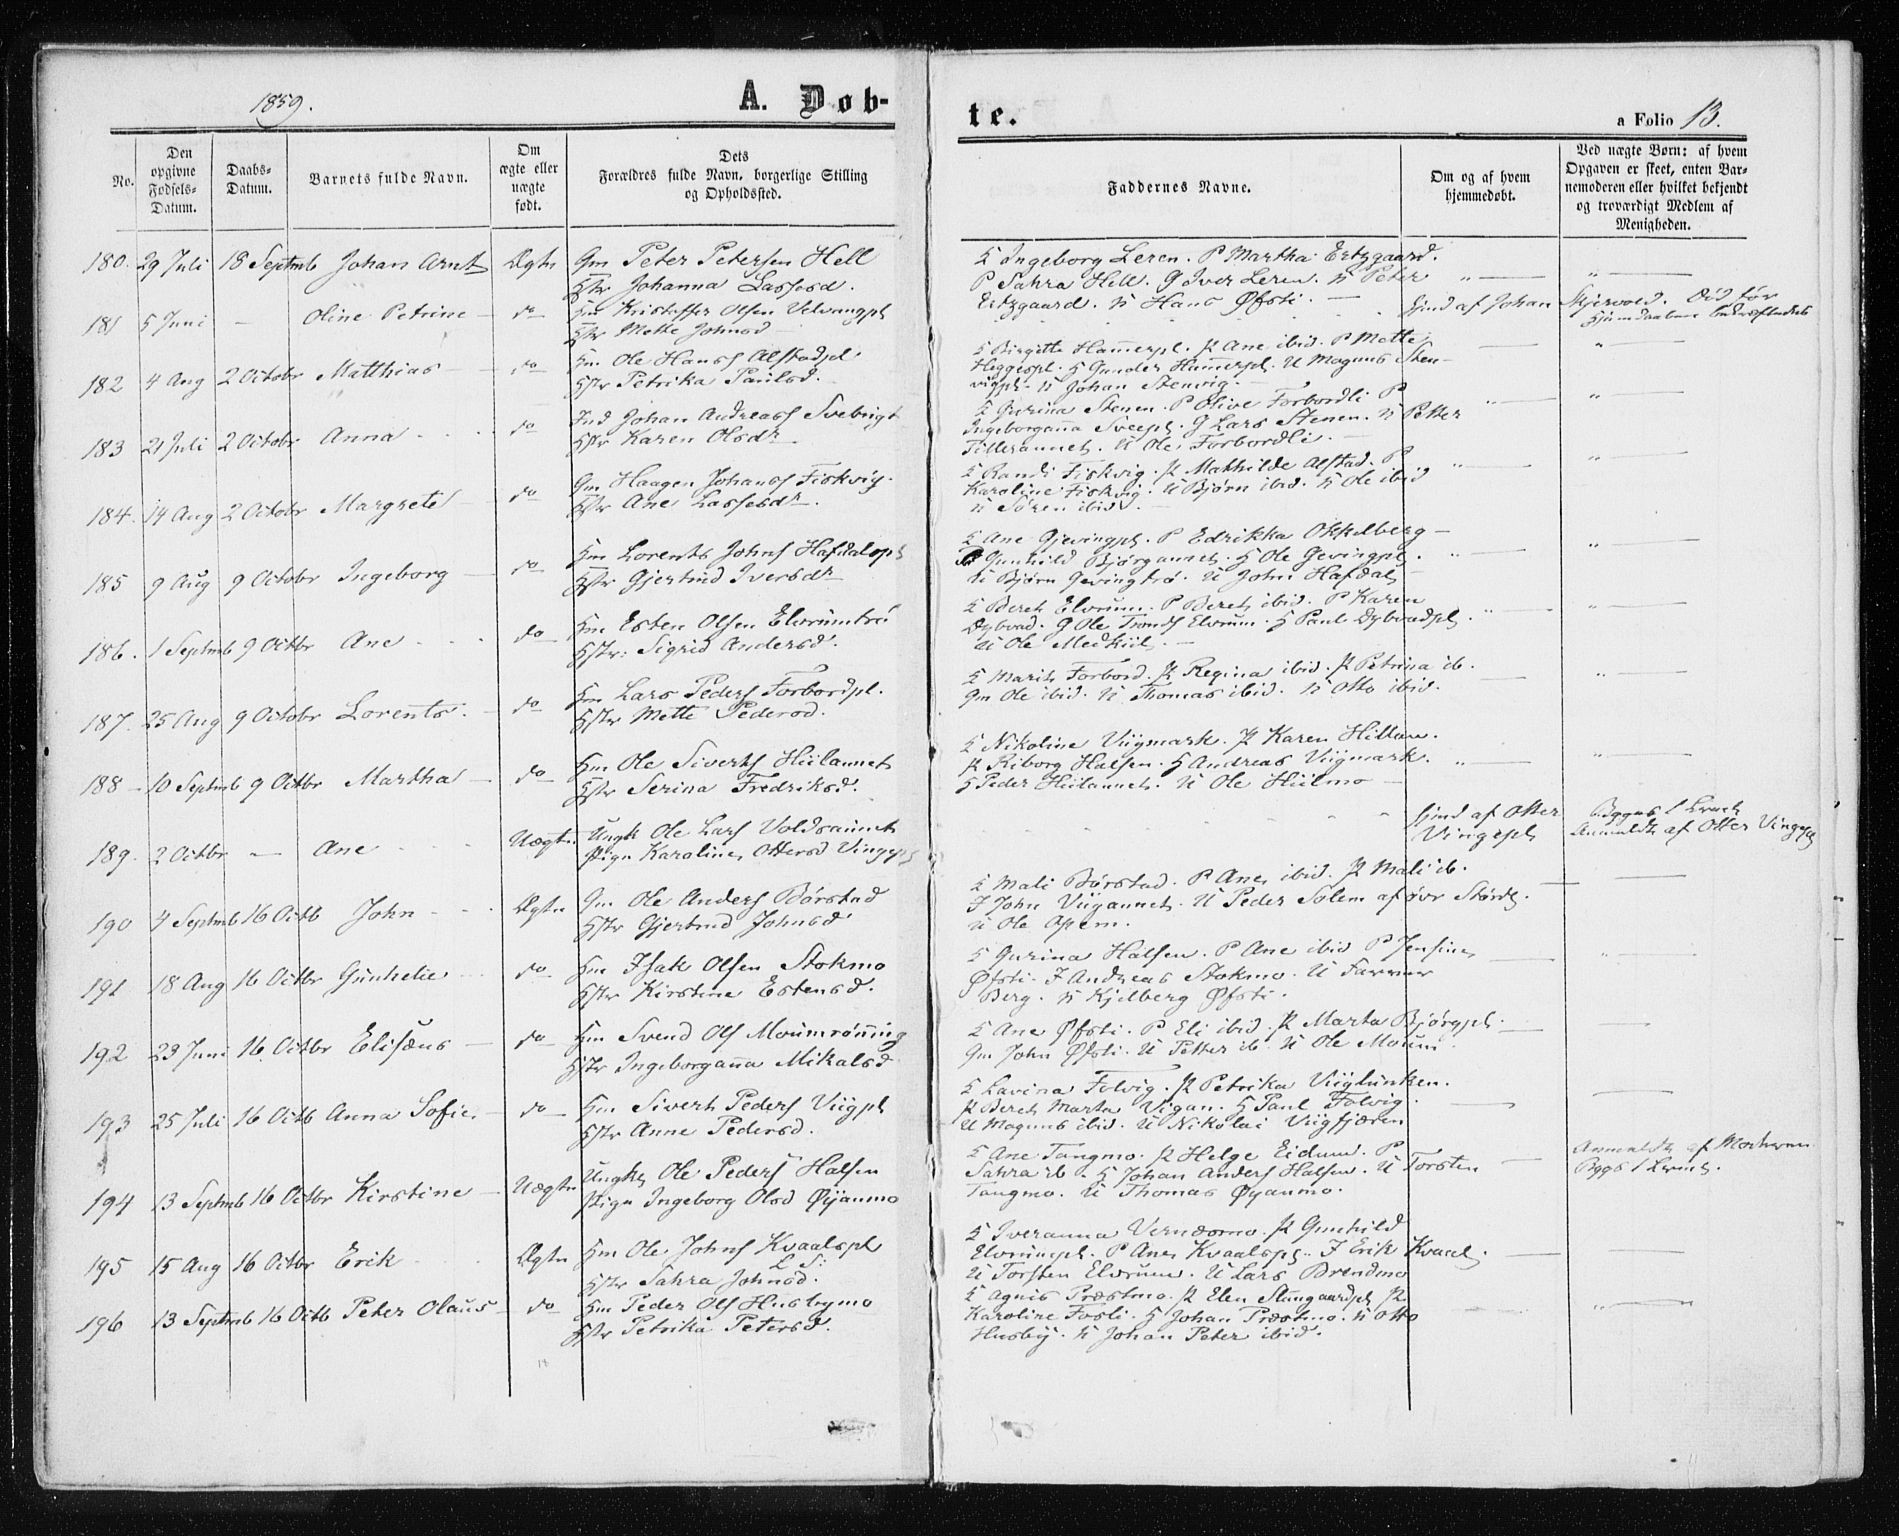 1859.
A. Døb-
te.
a Folio 13.
No.
Den opgivne Fødsels-Datum.
Daabs-Datum.
Barnets fulde Navn.
Om ægte eller uægte født.
Dets Forældres fulde Navn, borgerlige Stilling og Opholdssted.
Faddernes Navne.
Om og af hvem hjemmedøbt.
Ved uægte Børn: af hvem Opgaven er skeet, enten Barnemoderen eller hvilket bekjendt og troværdigt Medlem af Menigheden.
180. 29 Juli 18 Septmb Johan Arnt Ægte Gm Peter Petersen Hell
Hstr Johanna Lassesd.
K Ingeborg Leren. P Martha Ertzgaard.
P Sahra Hell. G Iver Leren. N Peter
Ertzgaard. N Hans Øfsti.
181 5 Juni — Oline Petrine — do Hm Kristoffer Olsen Velvangpl
Hstr Mette Johnsd
hjmd af Johan Skjervold. Død før
Hjemdaaben bekræftedes
182 4 Aug 2 Octobr Matthias — do Hm Ole Hanss Alstadpl.
Hstr Petrika Paulsd.
K Birgitte Hammerpl. Pk Ane ibid. P Mette
Heggespl. H Gunder Hammerpl. U Magnus Sten-
vigpl. N Johan Stenvig.
183 21 Juli 2 Octobr Anna do Ind Johan Andreass Svebrigt
Hstr Karen Olsdr
K Gurina Stenen. P Olive Forbordli P
Ingeborganna Sveepl. G Lars Stenen. N Petter
Tilleraunet. U Ole Forbordli.
184. 14 Aug 2 Octobr Margrete do Gm Haagen Johanss Fiskvig.
Hstr Ane Lassesdr.
K Randi Fiskvig. Pk Mathilde Alstad. P
Karoline Fiskvig. U Bjørn ibid. N Ole ibid
N Sören ibid.
185 9 Aug 9 Octobr Ingeborg — do Hm Lorents Johns Hafdalspl
Hstr Gjertrud Iversdr
K Ane Gjevingpl. P Edrikka Okkelberg —
P Gunhild Bjørgannet. H Ole Gevingpl.
U Bjørn Gevingtrø. U John Hafdal
186. 1 Septmb 9 Octbr Ane do Hm Esten Olsen Elvrumtrø
Hstr: Sigrid Andersd.
K Beret Elvrum. P Beret ibid. P Karen
Dybvad. G Ole Tronds Elvrum. H Paul Dybvadpl.
U Ole Medkiil.
187. 25 Aug 9 Octobr Lorents. — do Hm Lars Peders Forbordpl.
Hstr Mette Pedersd.
K Marit Forbord. Pk Regina ibid. Pk Petrina ib.
Gm Ole ibid. N Thomas ibid. N Otto ibid.
188 — 10 Septmb 9 Octbr Martha — do Hm Ole Siverts Hiilannet
Hstr Serina Fredriksd.
K Nikoline Viigmark. Pk Karen Hiilan.
Pk Kiborg Halsen. H Andreas Viigmark.
H Peder Hiilannet. U Ole Hiilmo
189. 2 Octbr — Ane Uægte Ungk Ole Lars Voldsaunet
Pige Karoline Ottersd Vingepl
hjmd af Otter
Vingepl
Begges 1 Leierm
Anmeldt af Otter Vingepl
190 4 Septmb 16 Octb John Ægte Gm Ole Anders Børstad
Hstr Gjertrud Johnsd
K Mali Børstad. P Ane ibid. Pk Mali ib.
I John Viigannet. U Peder Solem af övr Stördl.
U Ole Opem.
191 18 Aug 16 Octbr Gunhelie do Hm Isak Olsen Stokmo
Hstr Kirstine Estensd.
K Gurina Halsen. P Ane ibid P Jensine
Øfsti. I Andreas Stokmo. U Farmer
Berg. N Kjelberg Øfsti.
192 23 Juni 16 Octbr Elisæus — do Hm Svend Ols Moumrønning
Hstr Ingeborganna Mikalsd
K Ane Øfsti. P Eli ibid. Pk Marta Bjørgpl.
Gm John Øfsti. U Petter ib. U Ole Moum.
193 25 Juli 16 Octb Anna Sofie. do Hm Sivert Peders Viigpl
Hstr Anne Pedersd.
K Lavina Folvig. Pk Petrika Viiglunken.
Pk Beret Marta Vigan. H Paul Folvig.
U Magnus ibid. U Nikolai Viigfjæren
194 13 Septmb 16 Octbr Kirstine Uægte Ungk Ole Peders Halsen
Pige Ingeborg Olsd Øyanmo
K Ane Tangmo. Pk Helge Eidum. P
Sahra ib. H Johan Anders Halsen. U Torsten
Tangmo. U Thomas Øyanmo.
Anmeldt af Moderen
Bggs 1 Leierm.
195 15 Aug 16 Octbr Erik Ægte Hm Ole Johns Kvaalspl
Hstr Sahra Johnsd.
K Iveranna Vernesmo. Pk Gunhild
Elvrumpl. P Ane Kvaalspl. I Erik Kvaal.
U Torsten Elvrum. U Lars Brendmo
196 13 Septmb 16 Octb Peter Olaus do Hm Peder Ols Husbymo
Hstr Petrika Petersd.
K Agnis Præstmo. Pk Elen Stungaardpl Pk
Karoline Fosli. H Johan Præstmo. N Otto
Husby. N Johan Peter ibid.